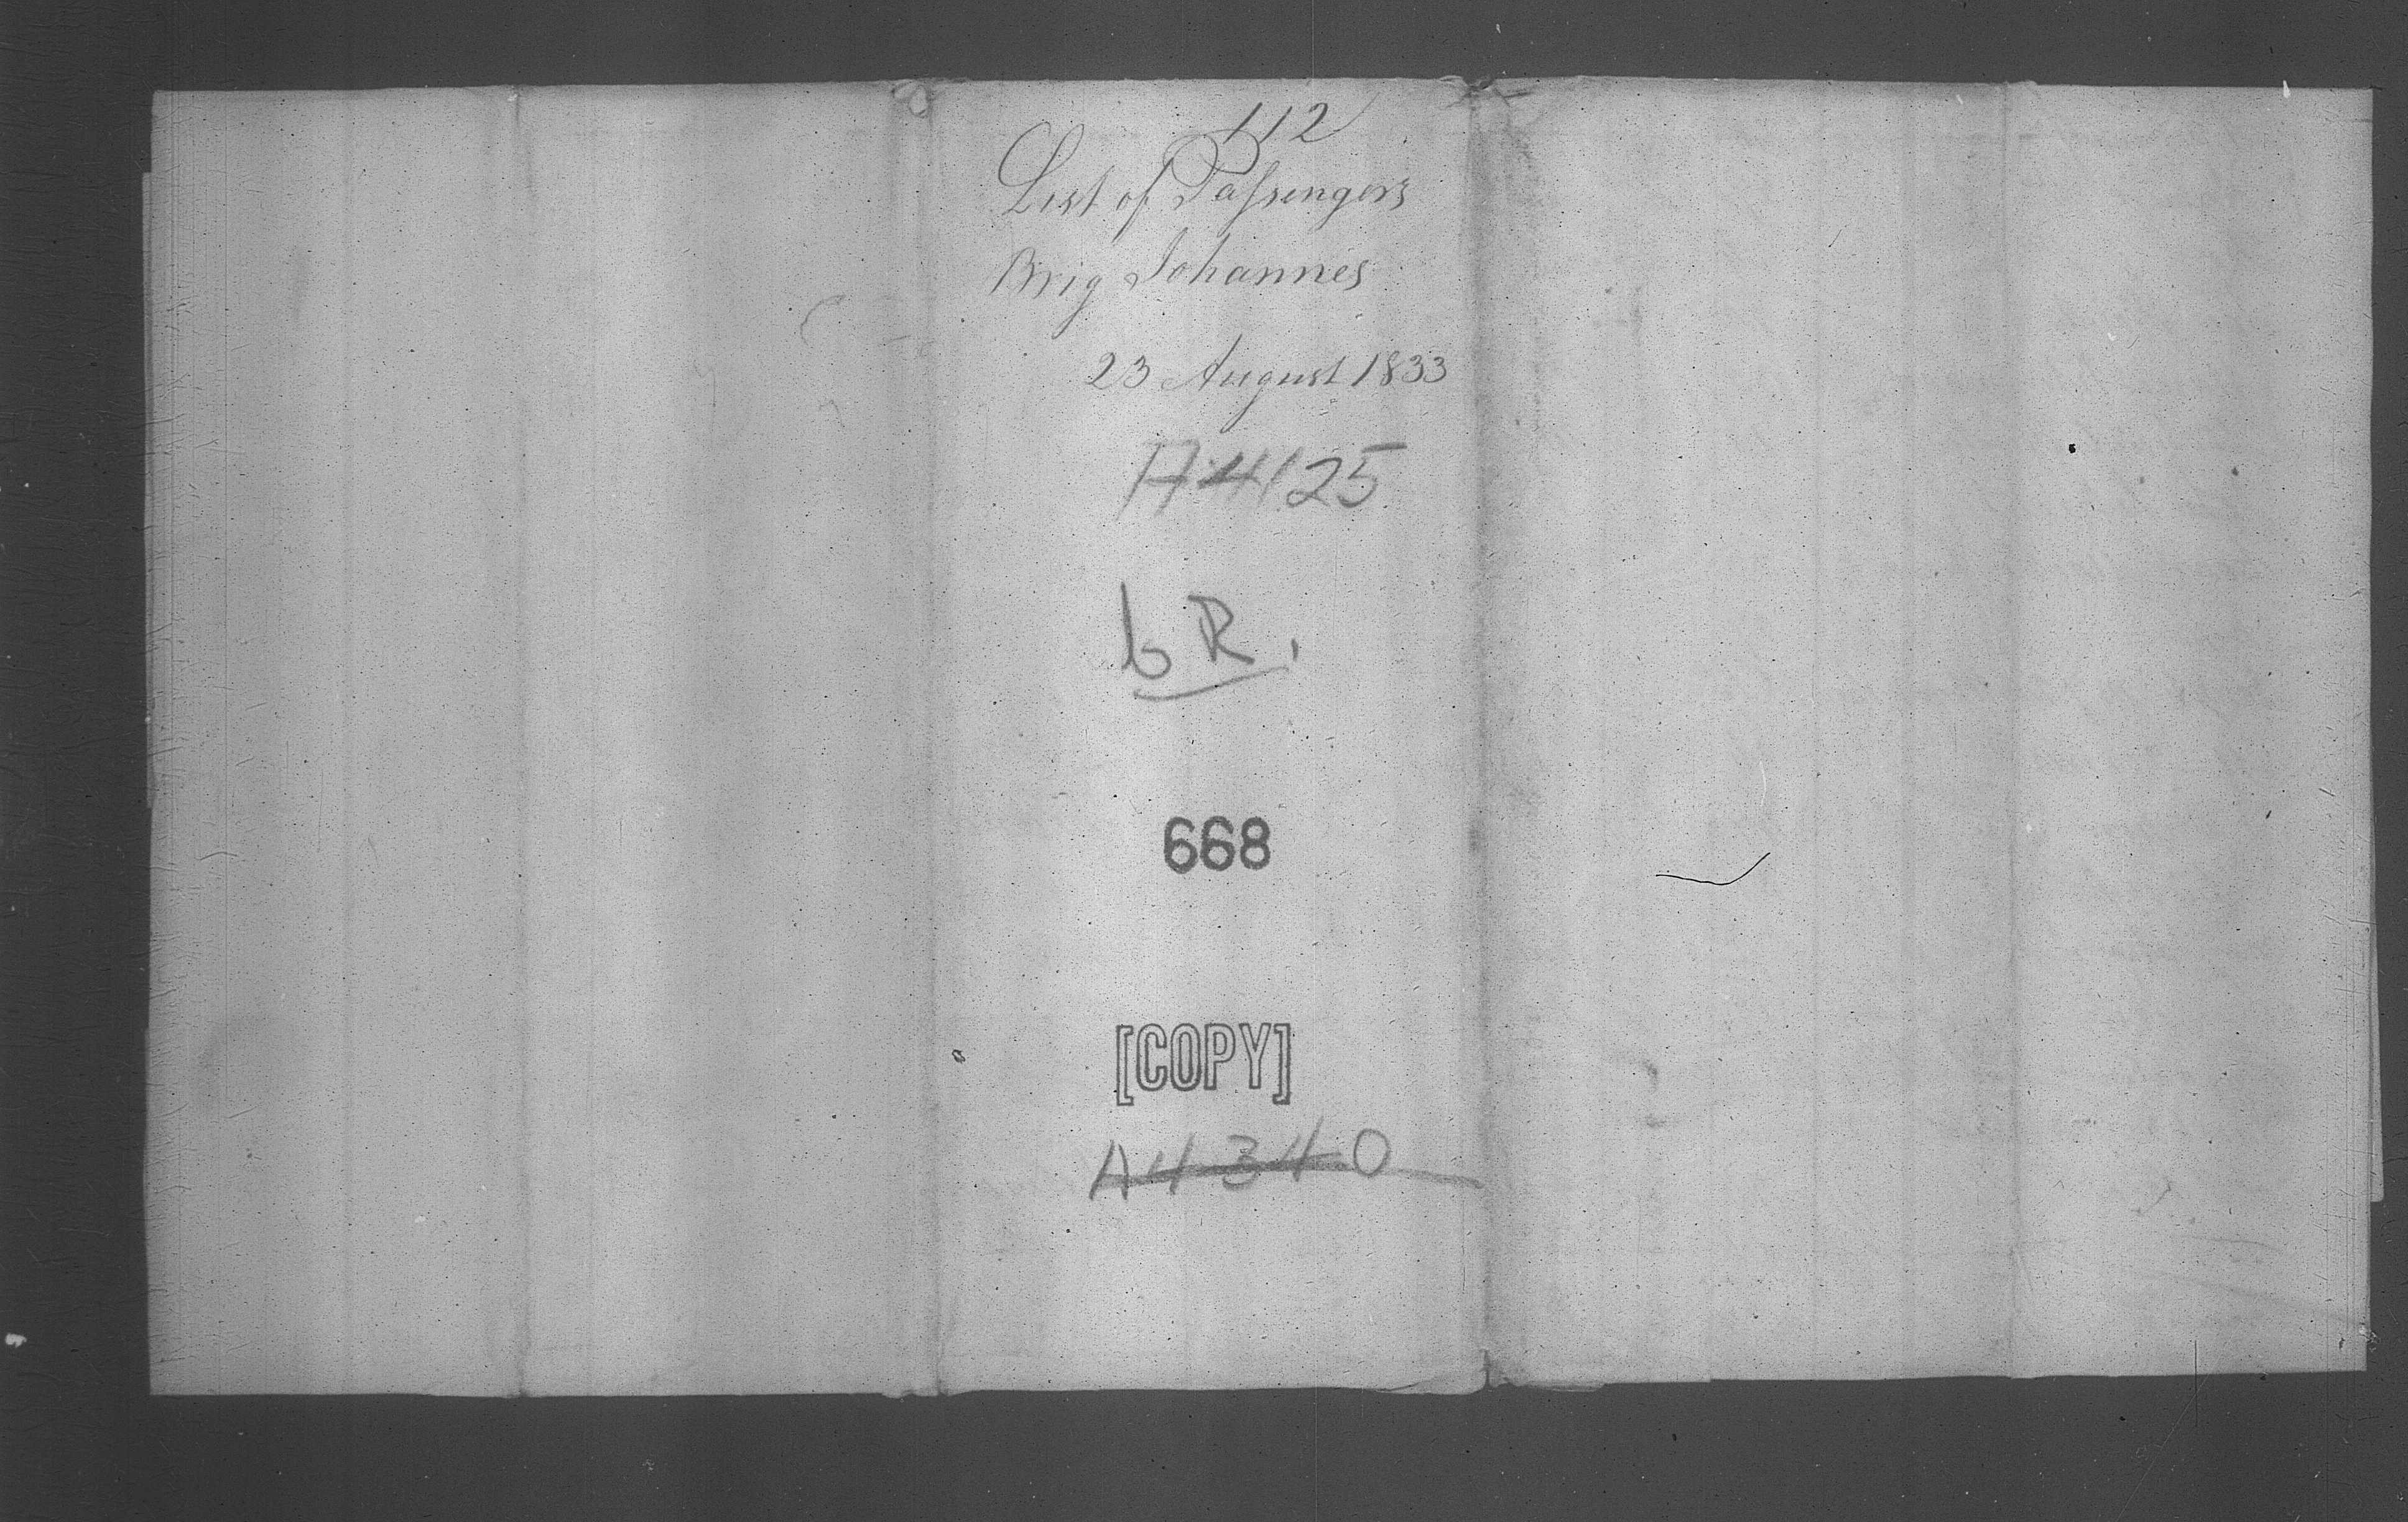 112
List of Passengers
Brig Johannes
23 August 1833
A4125
bR.
668
[COPY]
A4340